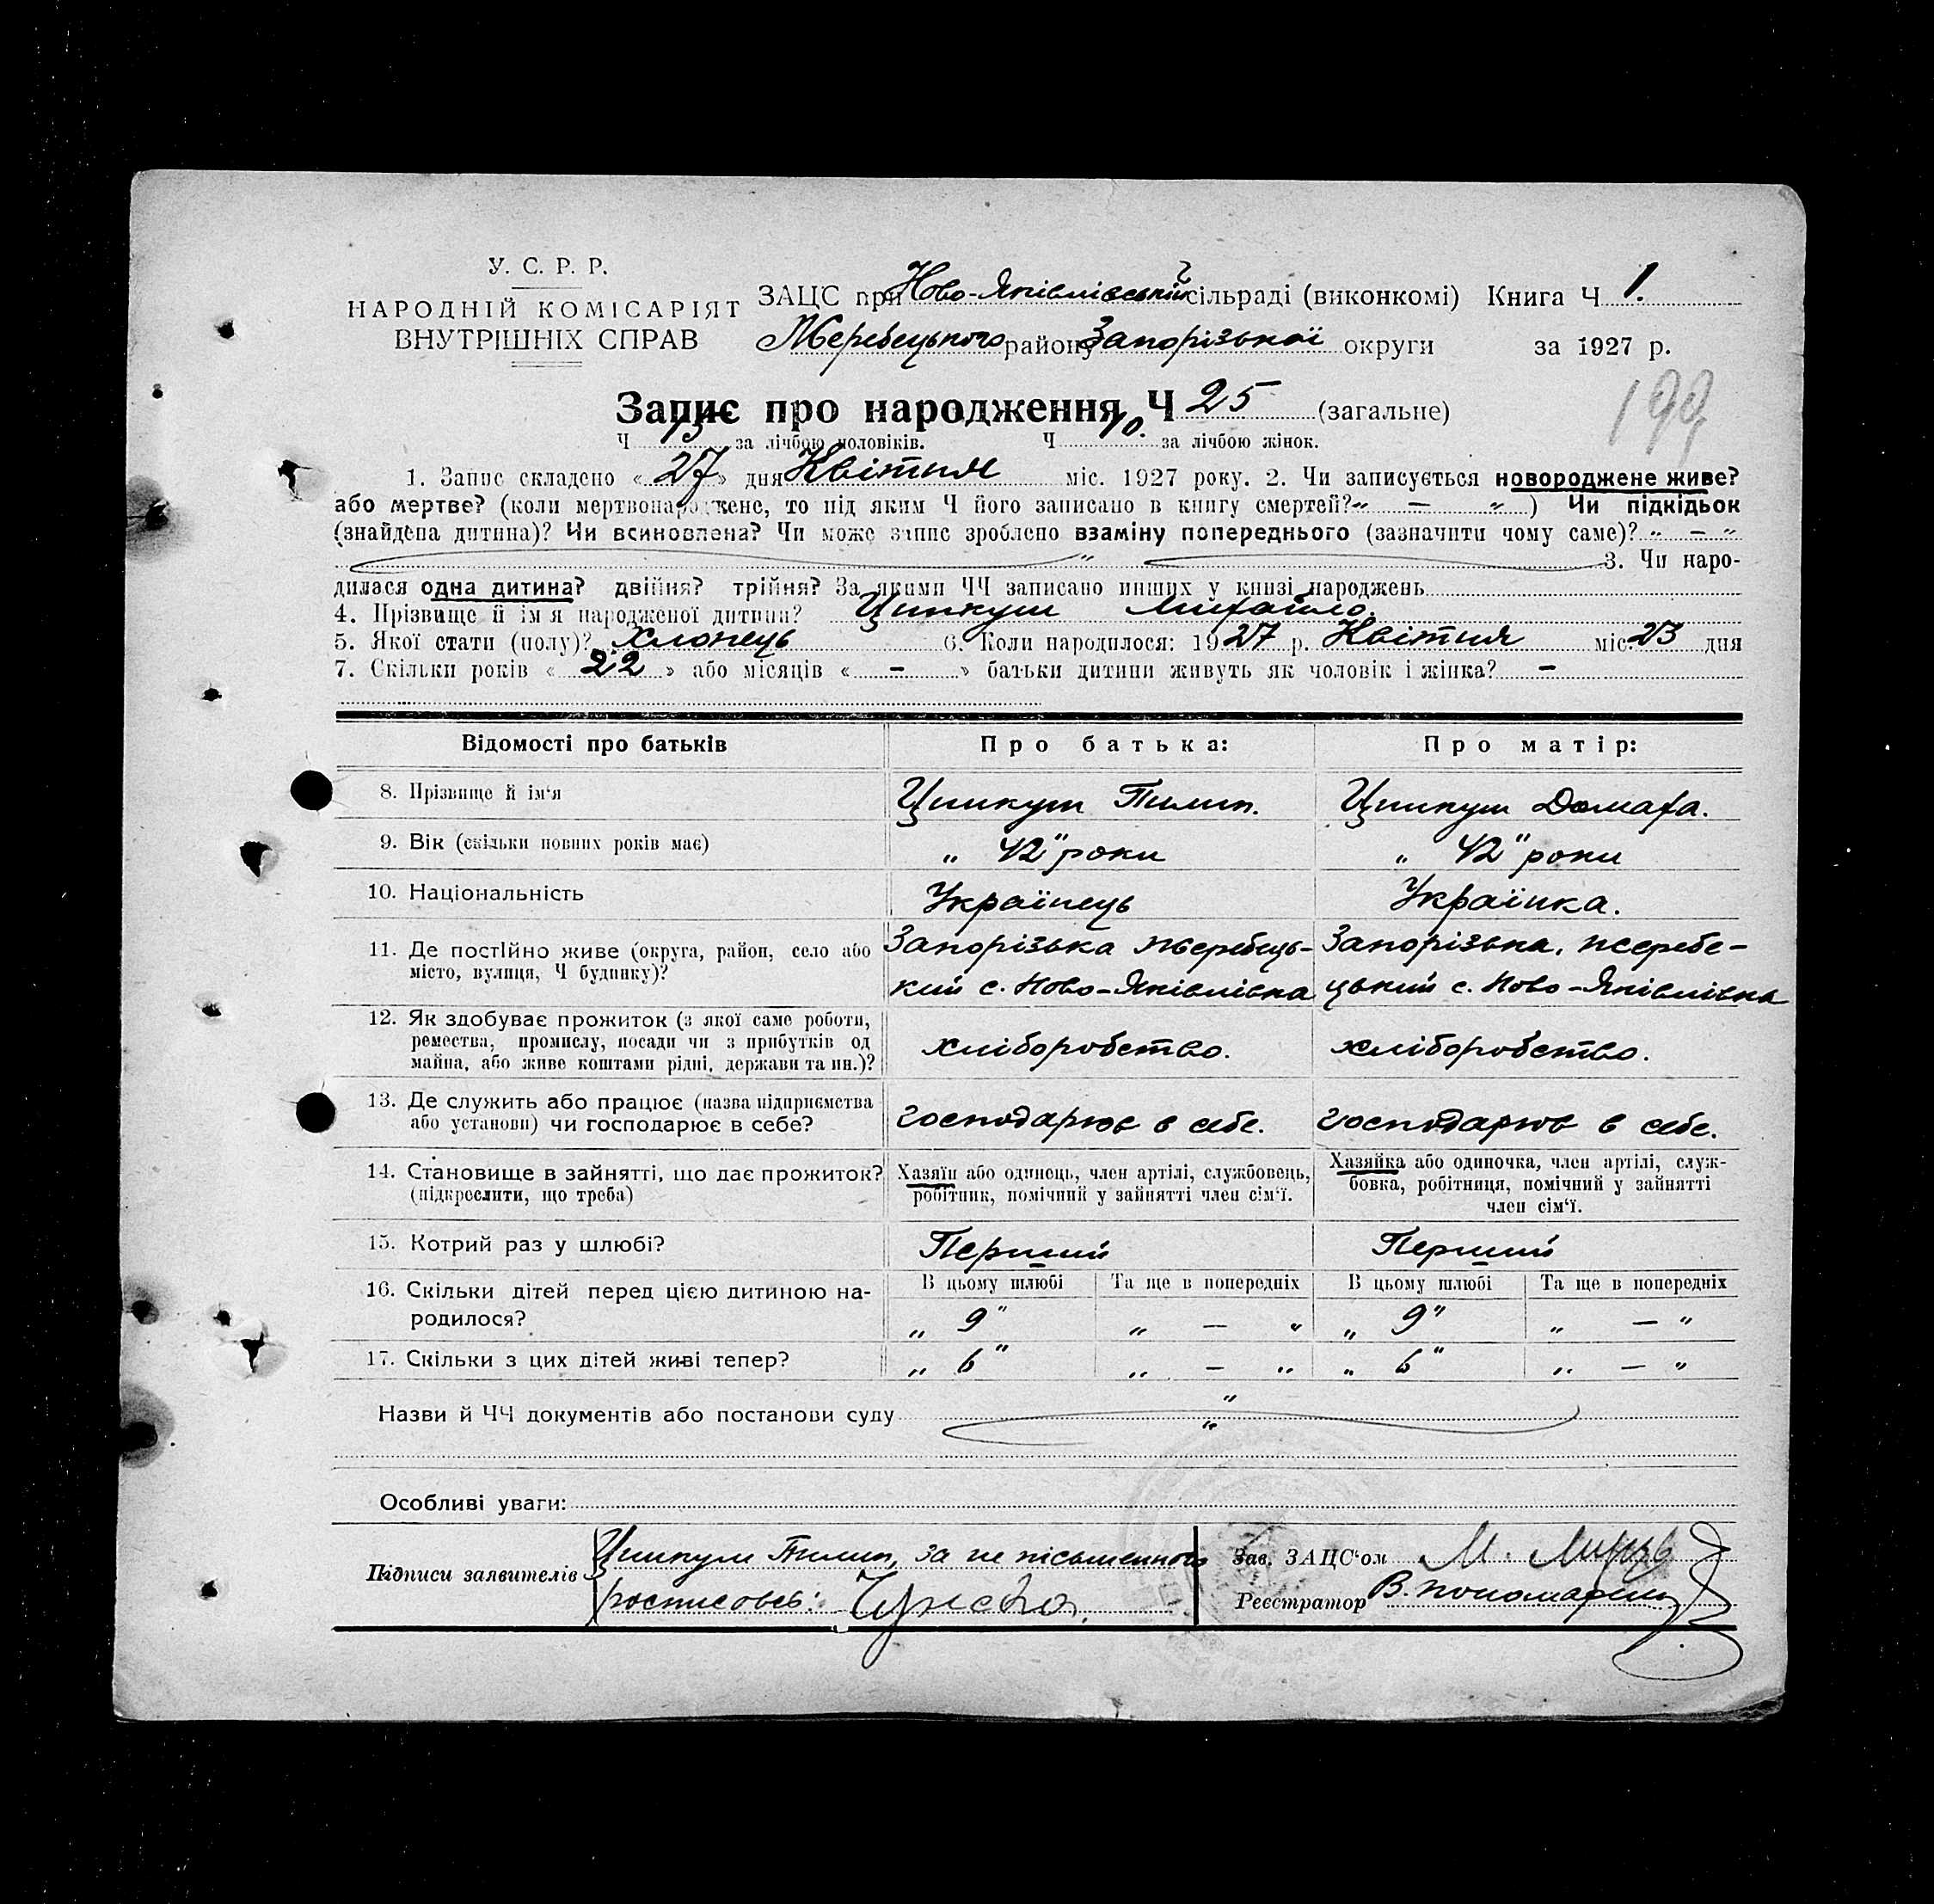 У. С. Р. Р.
НАРОДНІЙ КОМІСАРІЯТ
ВНУТРІШНІХ СПРАВ
ЗАЦС при Ново-Яківлівській сільраді (виконкомі) Книга Ч 1.
Жеребецького району Запорізької округи за 1927 р.
199
Запис про народження Ч 25 (загальне)
Ч 15 за лічбою чоловіків. Ч 10. за лічбою жінок.
1. Запис складено «27» дня Квітня міс. 1927 року. 2. Чи записується новороджене живе?
або мертве? (коли мертвонароджене, то під яким Ч його записано в книгу смертей? „ — „ ) Чи підкідьок
(знайдена дитина)? Чи всиновлена? Чи може запис зроблено взаміну попереднього (зазначити чому саме)? „ — „
„ 3. Чи наро-
дилася одна дитина? двійня? трійня? За якими ЧЧ записано инших у книзі народжень
4. Прізвище й ім я народженої дитини? Ципкуш Михайло.
5. Якої стати (полу)? Хлопець 6. Коли народилося: 1927 р. Квітня міс. 23 дня
7. Скільки років « 22 » або місяців « - » батьки дитини живуть як чоловік і жінка? -
Відомості про батьків Про батька: Про матір:
8. Прізвище й ім‘я Ципкуш Пилип. Ципкуш Домаха.
9. Вік (скільки повних років має) „ 42" роки „ 42" роки
10. Національність Українець Українка.
11. Де постійно живе (округа, район, село або Запорізька Жеребець- Запорізька, жеребе-
місто, вулиця, Ч будинку)? кий с. Ново-Яківлівка цький с. Ново-Яківлівка
12. Як здобуває прожиток (з якої саме роботи,
ремества, промислу, посади чи з прибутків од хліборобство. хліборобство.
майна, або живе коштами рідні, держави та ин.)?
13. Де служить або працює (назва підприємства
або установи) чи господарює в себе? господарює в себе. господарює в себе.
14. Становище в зайнятті, що дає прожиток? Хазяїн або одинець, член артілі, службовець, Хазяйка або одиночка, член артілі, служ-
(підкреслити, що треба) робітник, помічний у зайнятті член сім‘ї. бовка, робітниця, помічний у зайнятті
член сім‘ї.
15. Котрий раз у шлюбі? Перший Перший
16. Скільки дітей перед цією дитиною на- В цьому шлюбі Та ще в попередніх В цьому шлюбі Та ще в попередніх
родилося? „ 9" „ — „ „ 9" „ — "
17. Скільки з цих дітей живі тепер? „ 6" „ — „ „ 6" „ — "
Назви й ЧЧ документів або постанови суду " "
Особливі уваги:
Підписи заявителів Ципкуш Пилип, за не письменного Зав. ЗАЦС‘ом М.
росписовсь: Реєстратор В.